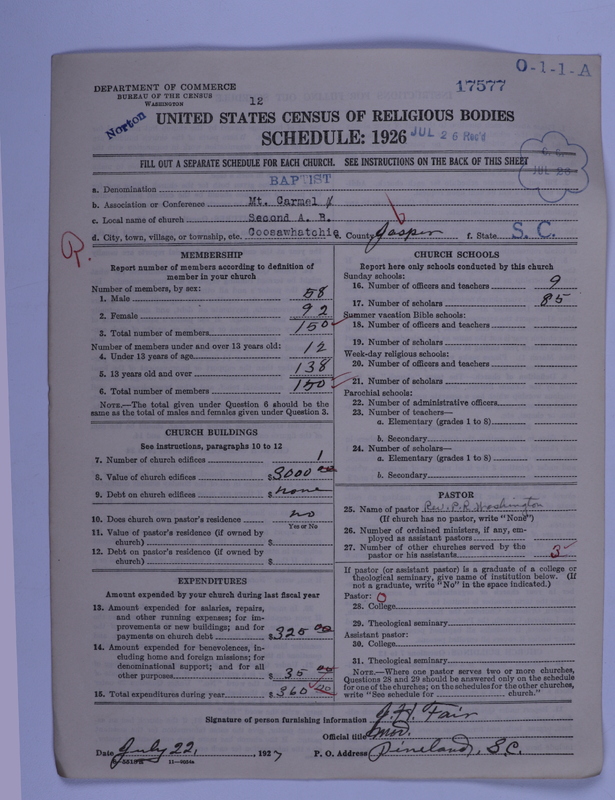 O-1-1-A
17577
DEPARTMENT OF COMMERCE
BUREAU OF THE CENSUS
WASHINGTON
12
Norton
UNITED STATES CENSUS OF RELIGIOUS BODIES
SCHEDULE: 1926
JUL 26 Rec'd
FILL OUT A SEPARATE SCHEDULE FOR EACH CHURCH. SEE INSTRUCTIONS ON THE BACK OF THIS SHEET
a. Denomination BAPTIST
b. Association or Conference Mt. Carmel
c. Local name of church Second A. B.
d. City, town, village, or township, etc. Coosawhatchie e. County Jasper f. State S. C.
R.
MEMBERSHIP
Report number of members according to definition of
member in your church
Number of members, by sex:
1. Male 58
2. Female 92
3. Total number of members 150
Number of members under and over 13 years old:
4. Under 13 years of age 12
5. 13 years old and over 138
6. Total number of members 150
NOTE.—The total given under Question 6 should be the
same as the total of males and females given under Question 3.
CHURCH BUILDINGS
See instructions, paragraphs 10 to 12
7. Number of church edifices 1
8. Value of church edifices $ 3000 00
9. Debt on church edifices $ none
10. Does church own pastor's residence no
Yes or No
11. Value of pastor's residence (if owned by
church) $
12. Debt on pastor's residence (if owned by
church) $
EXPENDITURES
Amount expended by your church during last fiscal year
13. Amount expended for salaries, repairs,
and other running expenses; for im-
provements or new buildings; and for
payments on church debt $ 325 00
14. Amount expended for benevolences, in-
cluding home and foreign missions; for
denominational support; and for all
other purposes $ 35 00
15. Total expenditures during year $ 360 00
CHURCH SCHOOLS
Report here only schools conducted by this church
Sunday schools:
16. Number of officers and teachers 9
17. Number of scholars 85
Summer vacation Bible schools:
18. Number of officers and teachers
19. Number of scholars
Week-day religious schools:
20. Number of officers and teachers
21. Number of scholars
Parochial schools:
22. Number of administrative officers
23. Number of teachers—
a. Elementary (grades 1 to 8)
b. Secondary
24. Number of scholars—
a. Elementary (grades 1 to 8)
b. Secondary
PASTOR
25. Name of pastor Rev. P. R. Washington
(If church has no pastor, write "None")
26. Number of ordained ministers, if any, em-
ployed as assistant pastors
27. Number of other churches served by the
pastor or his assistants 3
If pastor (or assistant pastor) is a graduate of a college or
theological seminary, give name of institution below. (If
not a graduate, write "No" in the space indicated.)
Pastor: O
28. College
29. Theological seminary
Assistant pastor:
30. College
31. Theological seminary
NOTE.—Where one pastor serves two or more churches,
Questions 28 and 29 should be answered only on the schedule
for one of the churches; on the schedules for the other churches,
write "See schedule for church."
Signature of person furnishing information J. H. Fair
Official title mod.
Date July 22, 1927 P. O. Address Pineland, S.C.